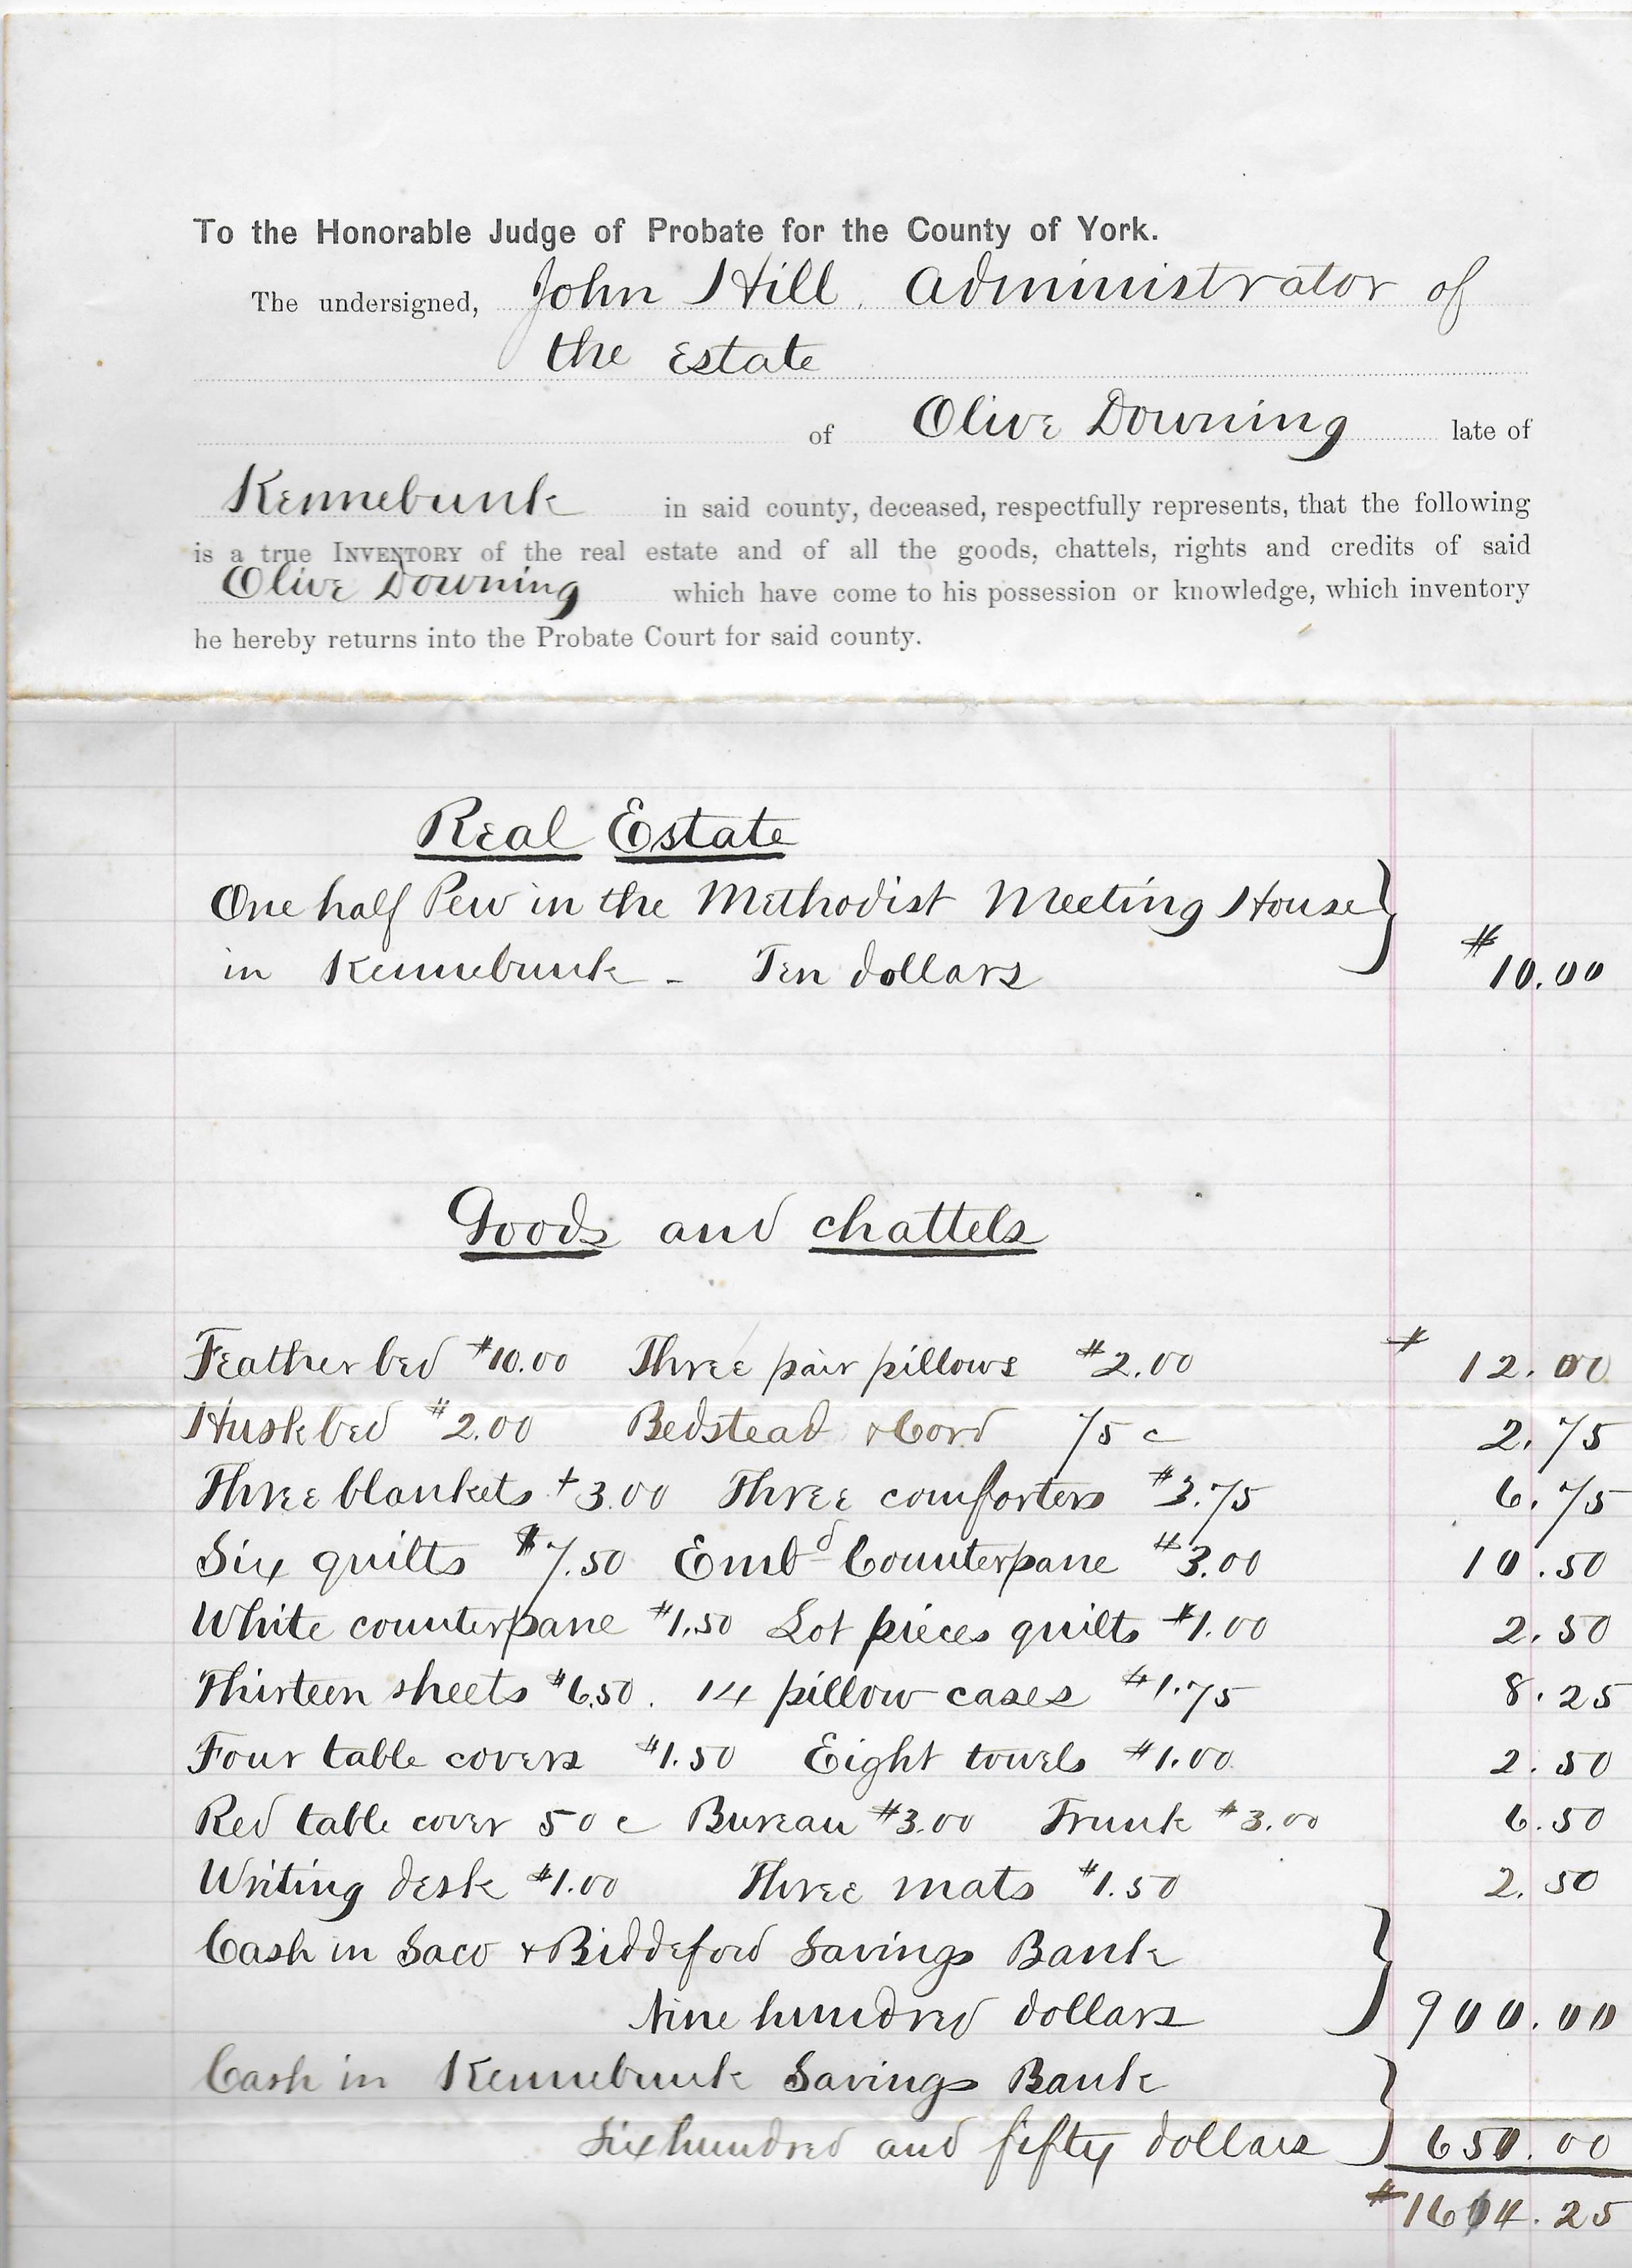 To the Honorable Judge of Probate for the County of York.
The undersigned, John Hill, Administrator of
the Estate
of Olive Downing late of
Kennebunk in said county, deceased, respectfully represents, that the following
is a true INVENTORY of the real estate and of all the goods, chattels, rights and credits of said
Olive Downing which have come to his possession or knowledge, which inventory
he hereby returns into the Probate Court for said county.
Real Estate
One half Pew in the Methodist Meeting House
in Kennebunk - Ten dollars $10.00
Goods and chattels
Feather bed $10.00 Three pair pillows $2.00 $12.00
Husk bed $2.00 Bedstead & Cord 75 c 2.75
Three blankets $3.00 Three comforters $3.75 6.75
Six quilts $7.50 Embd Counterpane $3.00 10.50
White counterpane $1.50 Lot pieces quilts $1.00 2.50
Thirteen sheets $6.50. 14 pillow cases $1.75 8.25
Four table covers $1.50 Eight towels $1.00 2.50
Red table cover 50 c Bureau $3.00 Trunk $3.00 6.50
Writing desk $1.00 Three mats $1.50 2.50
Cash in Saco & Biddeford Savings Bank
Nine hundred dollars 900.00
Cash in Kennebunk Savings Bank
Six hundred and fifty dollars 650.00
$1604.25